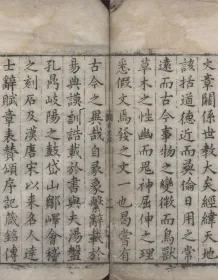 文章關係世教大矣經緯天地
該括道德近而彛倫日用之常
遠而古今事物之變微而鳥獸
草木之性幽而鬼神屈伸之理
悉假文焉發之文一也曷嘗有
古今之異哉自彖象繫辭載於
易典謨訓誥載於書與夫湯盤
孔鼎岐陽之鼓岱山鄒嶧會稽
之刻石及漢唐宋以來名人達
士辭賦章表賛頌序記箴銘傳